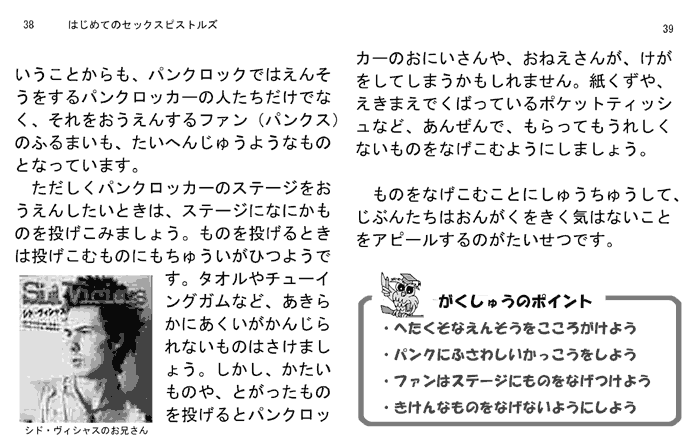 38　はじめてのセックスピストルズ
いうことからも、パンクロックではえんそ
うをするパンクロッカーの人たちだけでな
く、それをおうえんするファン（パンクス）
のふるまいも、たいへんじゅうようなもの
となっています。
ただしくパンクロッカーのステージをお
うえんしたいときは、ステージになにかも
のを投げこみましょう。ものを投げるとき
は投げこむものにもちゅういがひつようで
す。タオルやチューイ
ンガムなど、あきら
かにあくいがかんじら
れないものはさけまし
ょう。しかし、かたい
ものや、とがったもの
を投げるとパンクロッ
Sid Vicious
シド・ヴィシャス
シド・ヴィシャスのお兄さん
39
カーのおにいさんや、おねえさんが、けが
をしてしまうかもしれません。紙くずや、
えきまえでくばっているポケットティッシ
ュなど、あんぜんで、もらってもうれしく
ないものをなげこむようにしましょう。
ものをなげこむことにしゅうちゅうして、
じぶんたちはおんがくをきく気はないこと
をアピールするのがたいせつです。
がくしゅうのポイント
・へたくそなえんそうをこころがけよう
・パンクにふさわしいかっこうをしよう
・ファンはステージにものをなげつけよう
・きけんなものをなげないようにしよう